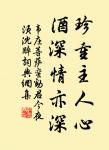 珍重主人心
酒深情亦深
韦庄菩萨蛮劝君今夜
须沈醉词典網集